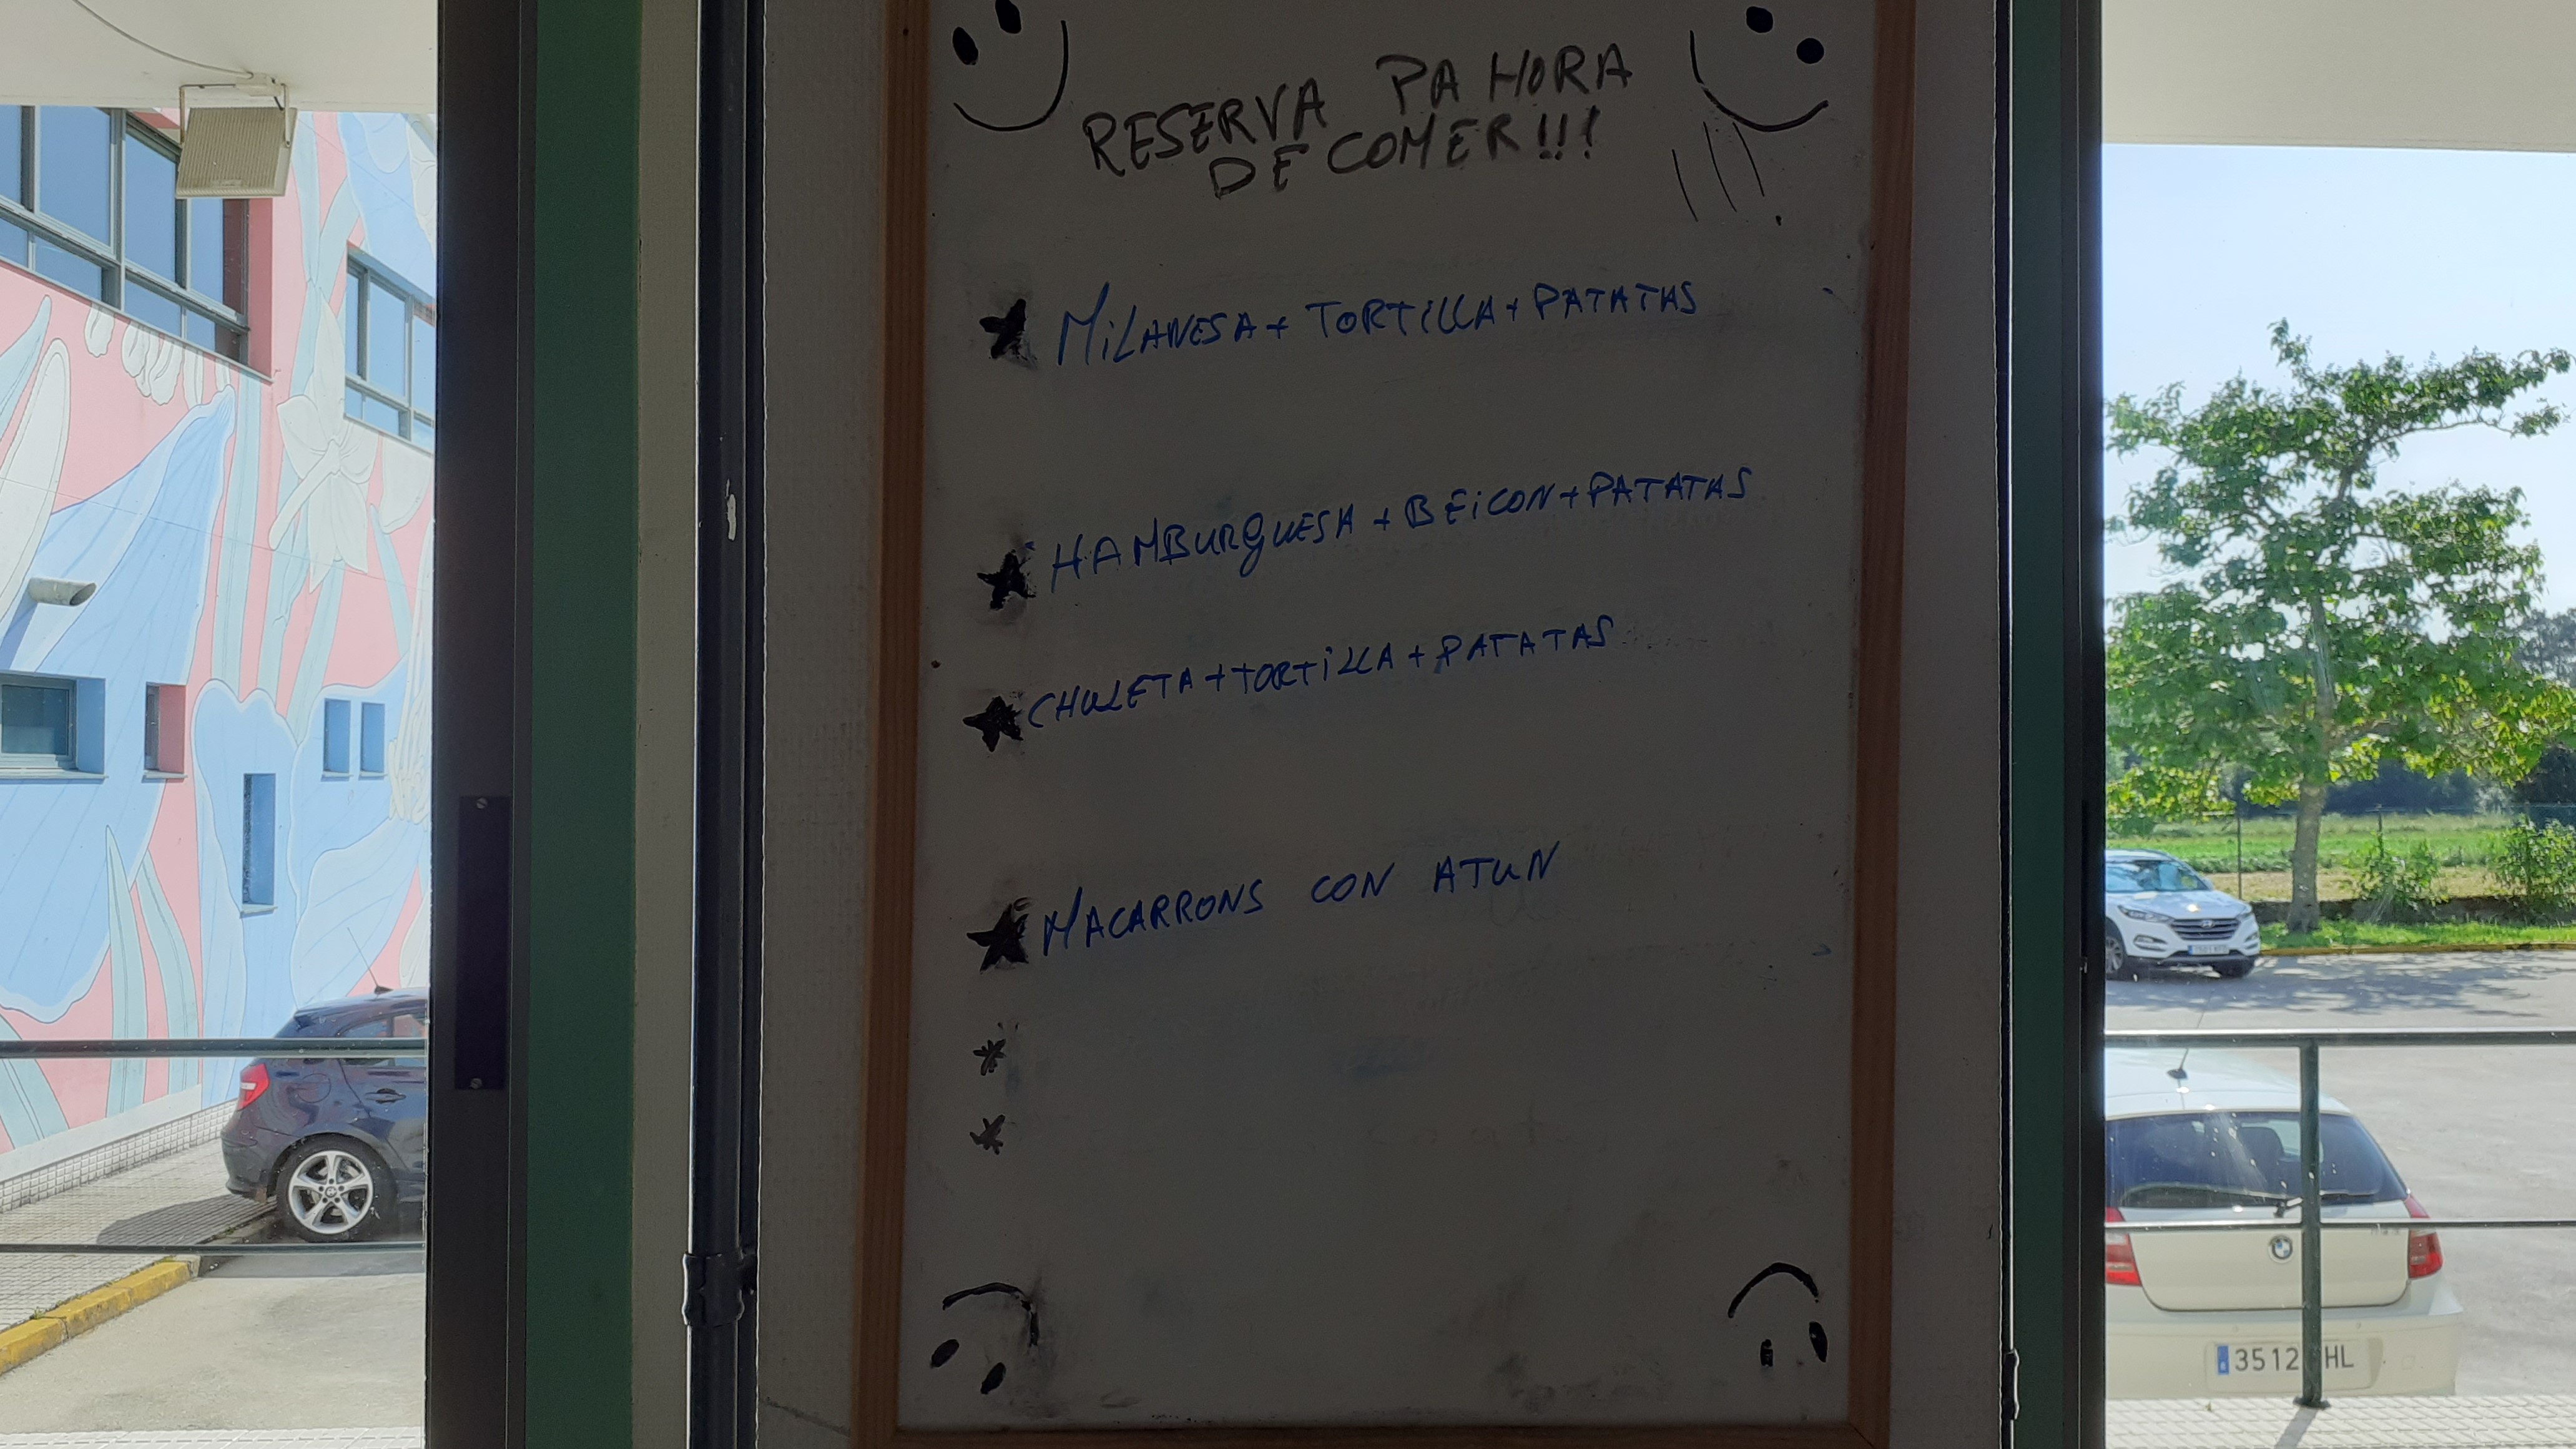 RESERVA PA HORA
DE COMER!!!
MILANESA + TORTILLA + PATATAS
HAMBURGUESA + BEICON + PATATAS
CHULETA + TORTILLA + PATATAS
MACARRONS CON ATUN
3512 HL